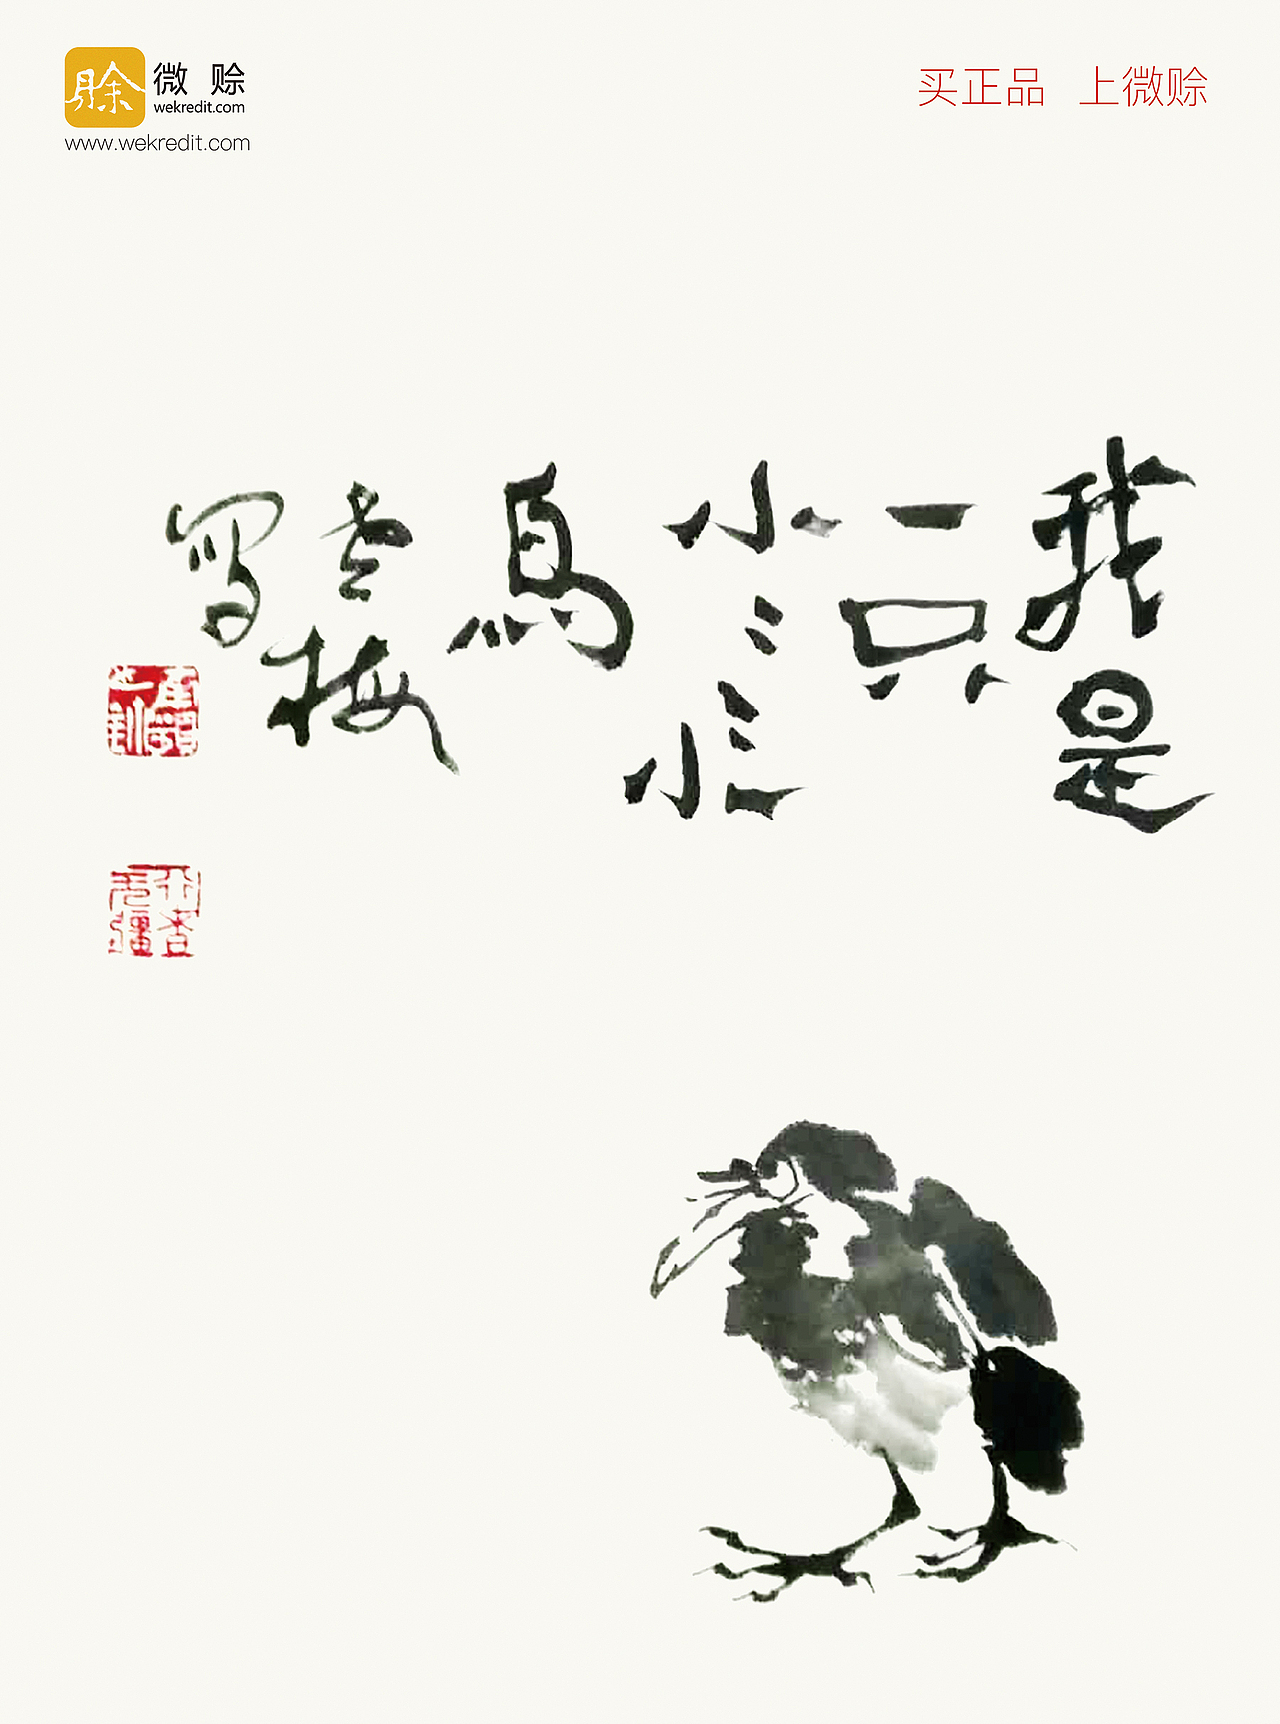 赊
微赊
wekredit.com
www.wekredit.com
买正品 上微赊
我是
一只
小小
鳥
老梅
写